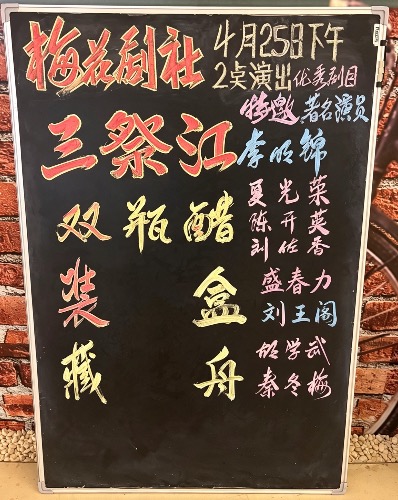 梅花剧社 4月25日下午
2点演出 优秀剧目
特邀 著名演员
三祭江 李明锦
夏光荣
双瓶醋 陈开英
刘佐香
装盒 盛春力
刘王阁
藏舟 胡学武
秦冬梅